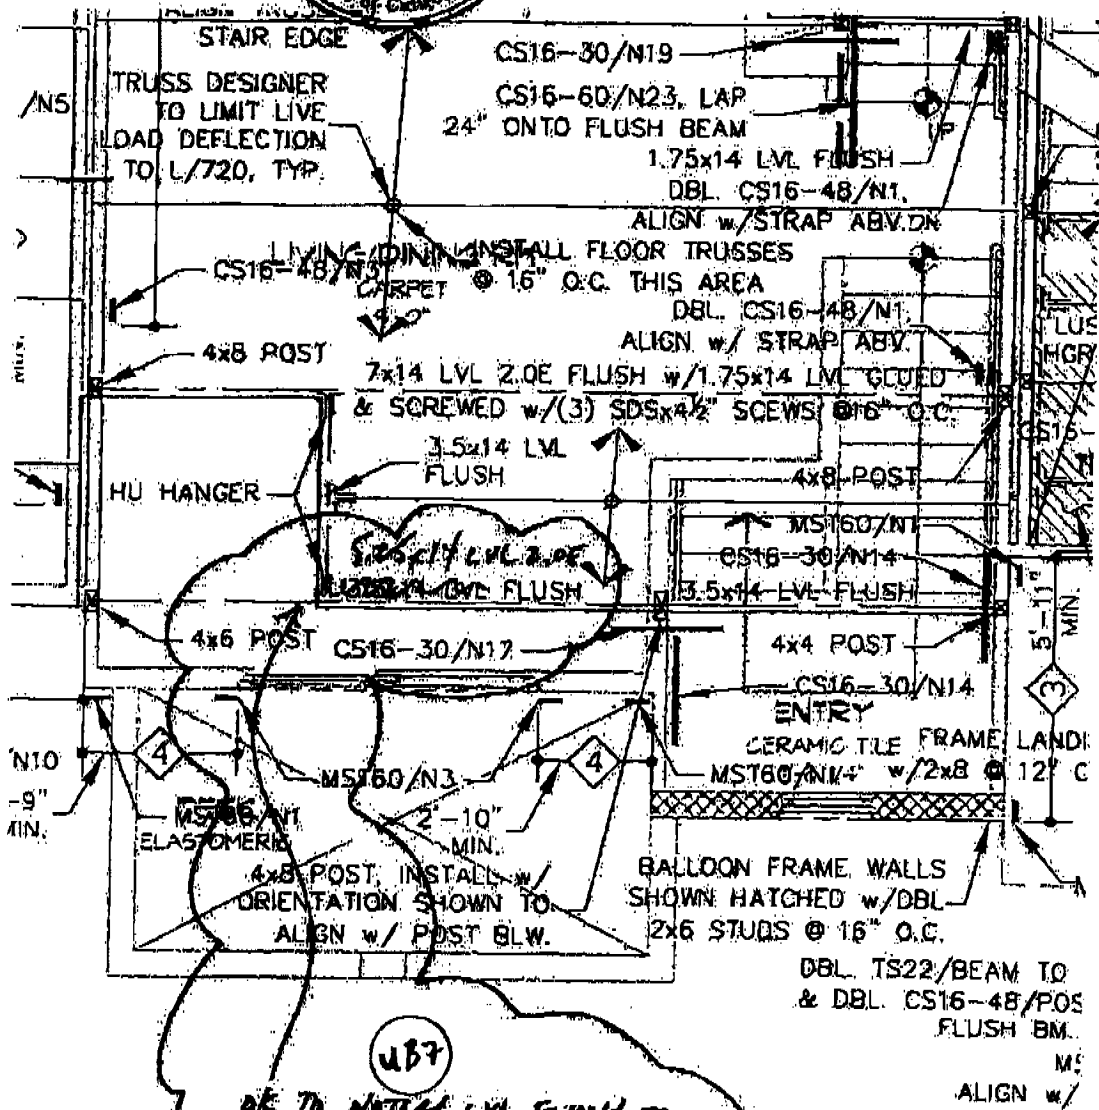 STAIR EDGE
CS16-30/N19
TRUSS DESIGNER
TO LIMIT LIVE
LOAD DEFLECTION
TO L/720, TYP.
/N5
CS16-60/N23, LAP
24" ONTO FLUSH BEAM
UP
1.75x14 LVL FLUSH
DBL. CS16-48/N1,
ALIGN w/STRAP ABV.
DN
INSTALL FLOOR TRUSSES
@ 16" O.C. THIS AREA
LIVING/DINING
CARPET
CS16-48/N3
DBL. CS16-48/N1,
ALIGN w/ STRAP ABV.
4x8 POST
7x14 LVL 2.0E FLUSH w/1.75x14 LVL GLUED
& SCREWED w/(3) SDSx4½" SCEWS @16" O.C.
HGR
CS16-
3.5x14 LVL
FLUSH
HU HANGER
4x8 POST
MST60/N1
CS16-30/N14
3.5x14 LVL FLUSH
5.25x14 LVL 2.0E
LVL FLUSH
4x6 POST
CS16-30/N17
4x4 POST
5'-11"
MIN.
3
CS16-30/N14
ENTRY
CERAMIC TILE
FRAME LANDI
w/2x8 @ 12" C
N10
-9"
MIN.
4
MST60/N3
4
MST60/N14
ELASTOMERIC
2'-10"
MIN.
4x8 POST, INSTALL w/
ORIENTATION SHOWN TO
ALIGN w/ POST BLW.
BALLOON FRAME WALLS
SHOWN HATCHED w/DBL
2x6 STUDS @ 16" O.C.
DBL. TS22/BEAM TO
& DBL. CS16-48/POS
FLUSH BM.
ALIGN w/
UB7